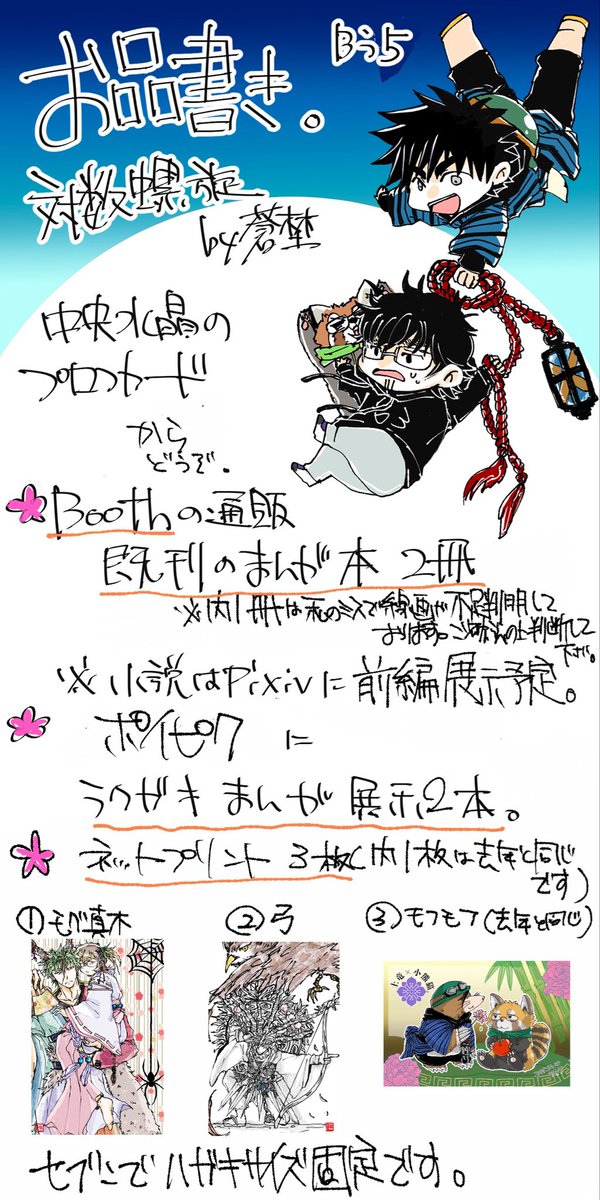 お品書き。
Bう5
対数螺旋
by 蒼埜
中央水晶の
プロフカード
から
どうぞ。
Boothの通販
既刊のまんが本 2冊
※内1冊は私のミスで線画が不足判明して
おります。ご承知の上判断して
下さい。
※小説はPixivに前編展示予定。
ポイピクに
ラクガキまんが展示2本。
ネットプリント 3枚(内1枚は去年と同じ
です)
①モグ真木
②弓
③モフモフ(去年と同じ)
土竜×小熊猫
セブンでハガキサイズ固定です。